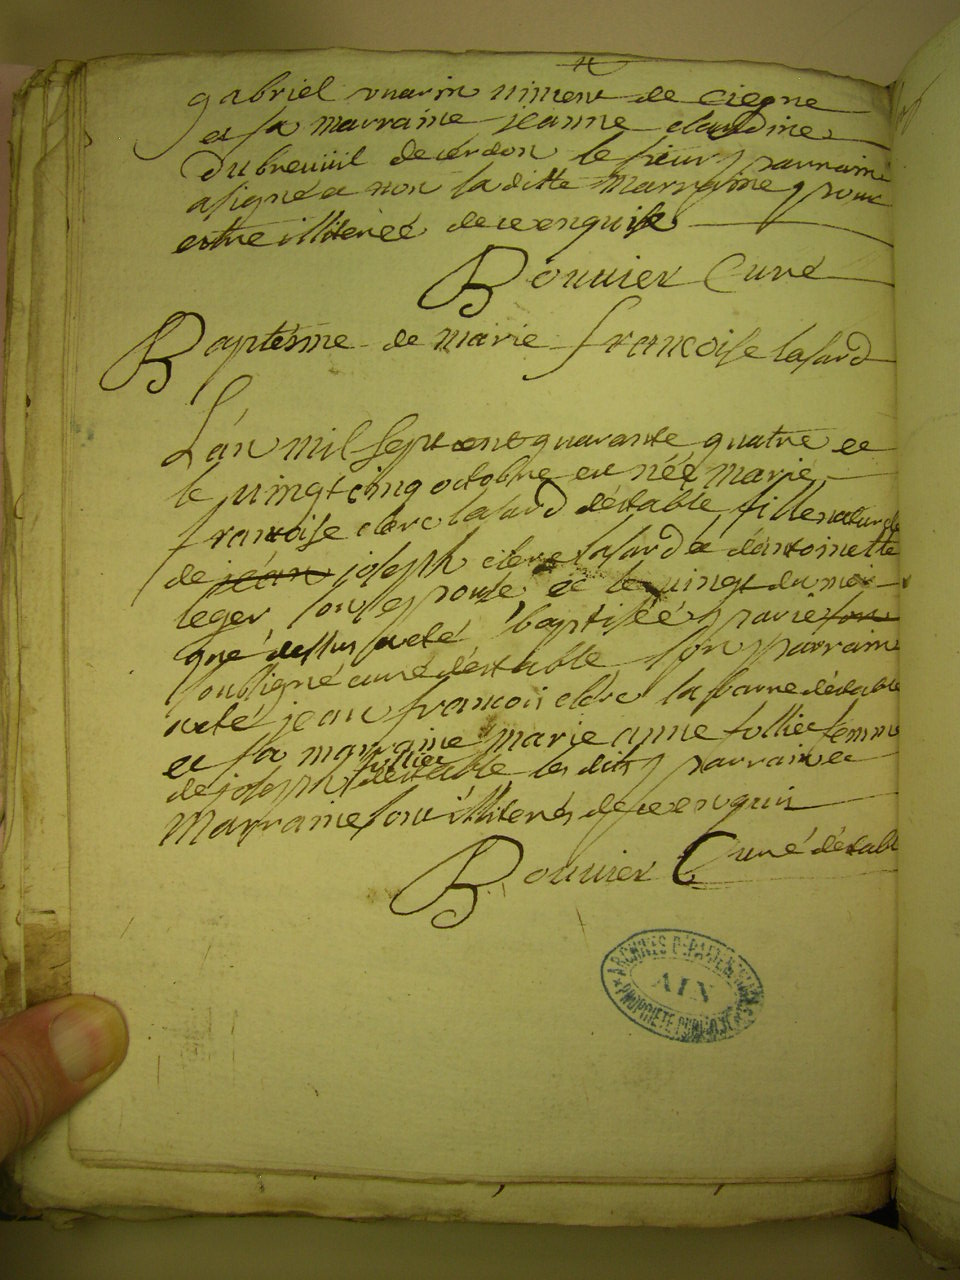 gabriel vuarin niment de ciegne
et sa marraine jeanne claudine
Dubreüiil de cerdon le sieur parrain
a signé et non la ditte marraine pour
estre illiterée de ce enquise
Bouvier Curé
Baptesme de marie francoise lasard
L'an mil sept cent quarante quatre et
le vingt cinq octobre est née marie
francoise clerc lasard déstable fille naturelle
de jean joseph clerc lasard et d'antoinette
leger son espouse et le vingt du moi
que dessus a eté baptisée par ie son
sousigné curé d'estable son parrain
a eté jean francois clerc la sarre déstable
et sa marraine marie anne follier femme
de joseph follier déstable les dits parrain et
Marraine sont illiterés de ce enquis
Bouvier Curé déstabl
ARCHIVES DÉPARTEMENTALES
AIN
PROPRIETE PUBLIQUE